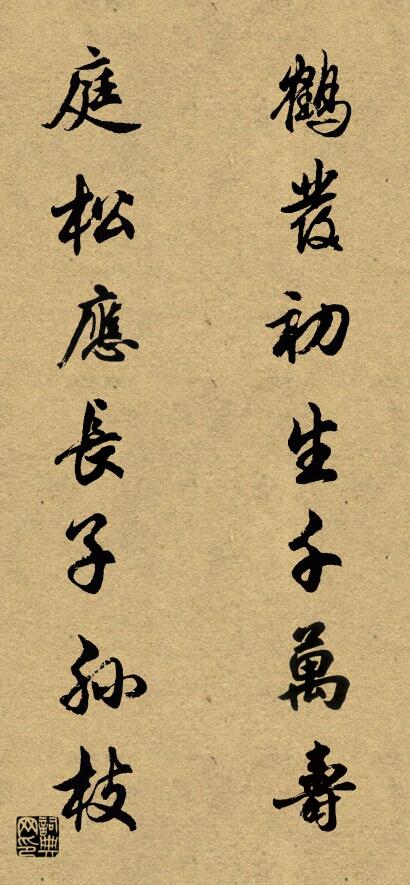 鶴發初生千萬壽
庭松應長子孫枝
詞典網印